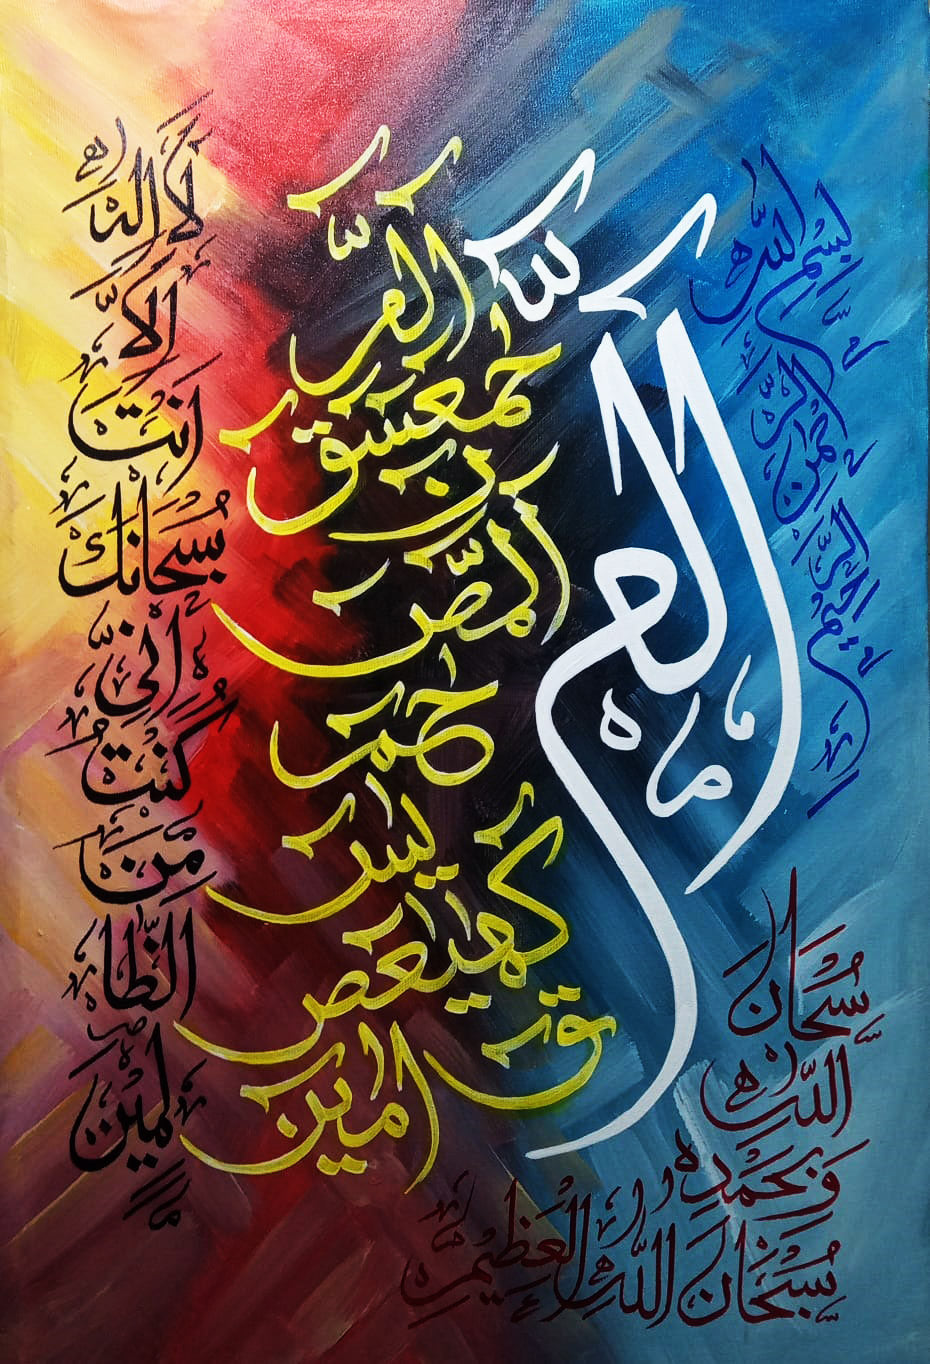 بِسْمِ اللّٰهِ
الرَّحْمٰنِ
الرَّحِيْمِ
الم
المر
حمعسق
ن
المص
حم
يس
كهيعص
ق
امين
لَا اِلٰهَ
اِلَّا
اَنْتَ
سُبْحَانَكَ
اِنِّیْ
كُنْتُ
مِنَ
الظّٰا
لِمِيْنَ
سُبْحَانَ
اللّٰهِ
وَبِحَمْدِهٖ
سُبْحَانَ اللّٰهِ الْعَظِيْمِ